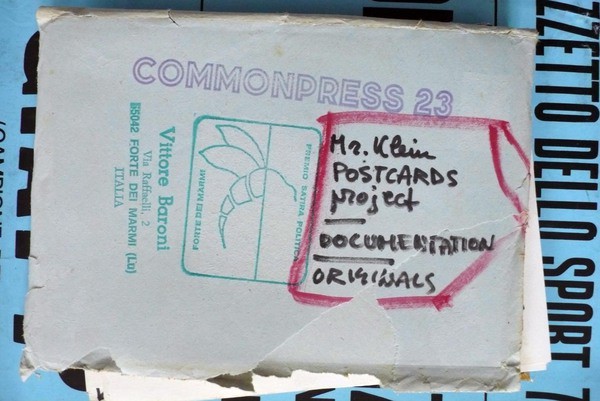 COMMONPRESS 23
Mr. Klein
POSTCARDS
project
DOCUMENTATION
ORIGINALS
PREMIO SATIRA POLITICA
FORTE DEI MARMI
Vittore Baroni
Via Raffaelli, 2
55042 FORTE DEI MARMI (Lu)
ITALIA
ZZETTO DELLO SPORT 7